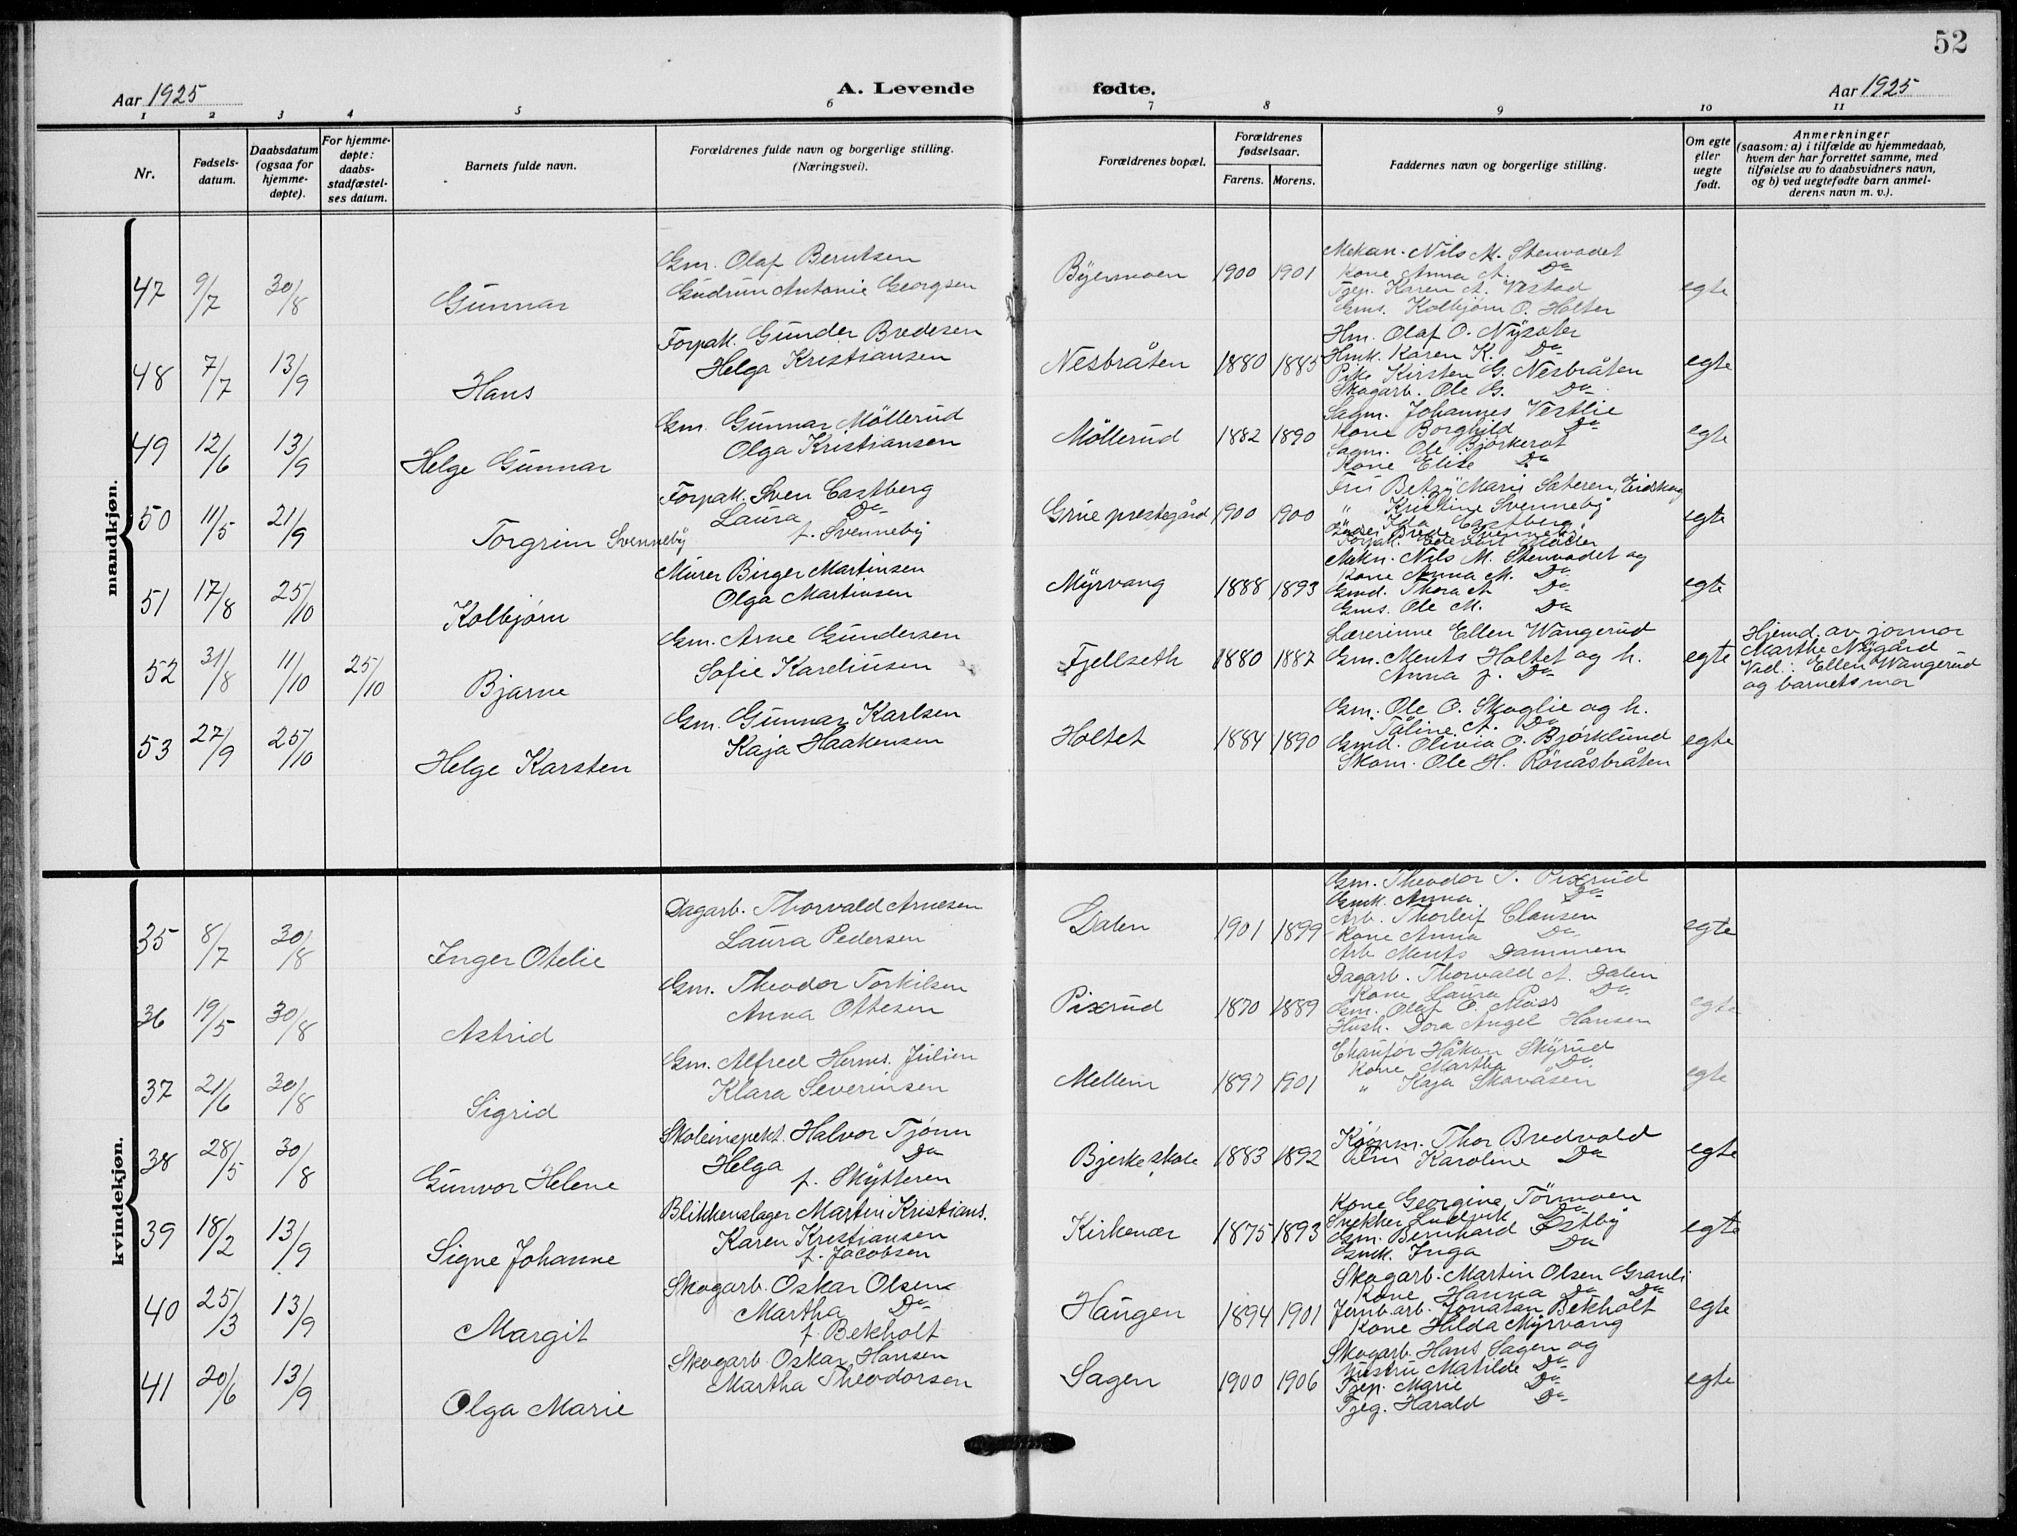 52
Aar 1925
A. Levende
fødte.
Aar 1925
1 2 3 4 5 6 7 8 9 10 11
Nr.
Fødsels-
datum.
Daabsdatum
(ogsaa for
hjemme-
døpte).
For hjemme-
døpte:
daabs-
stadfæstel-
ses datum.
Barnets fulde navn.
Forældrenes fulde navn og borgerlige stilling.
(Næringsvei).
Forældrenes bopæl.
Forældrenes
fødselsaar.
Farens. Morens.
Faddernes navn og borgerlige stilling.
Om egte
eller
uegte
født.
Anmerkninger
(saasom: a) i tilfælde av hjemmedaab,
hvem der har forrettet samme, med
tilføielse av to daabsvidners navn,
og b) ved uegtefødte barn anmel-
derens navn m. v.).
mandkjøn.
47 9/7 30/8 Gunnar
Gm. Olaf Berntsen
Gudrun Antonie Georgsen
Byermoen 1900 1901
Mekan. Nils M. Stenvadet
Kone Anna A. Do
Tjep. Karen A. Vestad
Gms. Kolbjørn O. Holter
egte
48 7/7 13/9 Hans
Forpakt. Gunder Bredesen
Helga Kristiansen
Nesbråten 1880 1885
Hm. Olaf O. Nysæter
Hmk. Karen K. Do
Pike Kirsten G. Nesbråten
Skogarb. Ole G. Do
egte
49 12/6 13/9 Helge Gunnar
Gm. Gunnar Möllerud
Olga Kristiansen
Möllerud 1882 1890
Sagm. Johannes Vestlie
Kone Borghild Do
Sagm. Ole Bjørkerot
Kone Elise Do
egte
50 11/5 21/9 Torgrim Svenneby
Forpakt. Sven Castberg
Laura Do
f. Svenneby
Grue prestegård 1900 1900
Fru Betzy Marie Sæteren, Eidskog
" Kristine Svenneby
" Ida Castberg
egte
51 17/8 25/10 Kolbjørn
Murer Birger Martinsen
Olga Martinsen
Myrvang 1888 1893
Mekn. Nils M. Stenvadet og
Kone Anna M. Do
Gmd. Thora A Do
Gms. Ole M. Do
egte
52 31/8 11/10 25/10 Bjarne
Gm. Arne Gundersen
Sofie Kareliusen
Fjellseth 1880 1887
Lærerinne Ellen Wangerud
Gm. Ments Holtet og h.
Anna J. Do
egte
Hjemd. av jormor
Marthe Nygård
Vid: Ellen Wangerud
og barnets mor
53 27/9 25/10 Helge Karsten
Gm. Gunnar Karlsen
Kaja Haakensen
Holtet 1884 1890
Gm. Ole O. Skoglie og h.
Taline A. Do
Gmd. Olivia O. Bjørklund
Skom. Ole H. Rönåsbråten
egte
kvindekjøn.
35 8/7 30/8 Inger Otelie
Dagarb. Thorvald Arnesen
Laura Pedersen
Dalen 1901 1899
Gm. Theodor T. Pixrud
Gmk. Anna Do
Arb. Thorleif Clausen
Kone Anna Do
Arb Ments Dammen
egte
36 19/5 30/8 Astrid
Gm. Theodor Torkilsen
Anna Ottesen
Pixrud 1870 1889
Dagarb. Thorvald A. Dalen
Kone Laura Do
Gm. Olaf O. Moss
Hush. Dora Angel Hansen
egte
37 21/6 30/8 Sigrid
Gm. Alfred Herms. Julien
Klara Severinsen
Mellem 1897 1901
Chaufør Håkon Skyrud
Kone Martha Do
" Kaja Skovåsen
egte
38 28/5 30/8 Gunvor Helene
Skoleinspekt. Halvor Tjönn
Helga Do
f. Skytteren
Bjerke skole 1883 1892
Kjøpm. Thor Bredvold
Fru Karoline Do
egte
39 18/2 13/9 Signe Johanne
Blikkenslager Martin Kristians.
Karen Kristiansen
f. Jacobsen
Kirkenær 1875 1893
Kone Georgine Törmoen
Snekker Ludvik Do
Gm. Bernhard Østby
Gmk. Inga Do
egte
40 25/3 13/9 Margit
Skogarb. Oskar Olsen
Martha Do
f. Bekholt
Haugen 1894 1901
Skogarb. Martin Olsen Granli
Kone Hanna Do Do
Jernb.arb. Jonatan Bekholt
Kone Hilda Myrvang
egte
41 20/6 13/9 Olga Marie
Skogarb. Oskar Hansen
Martha Theodorsen
Sagen 1900 1906
Skogarb. Hans Sagen og
Hustru Matilde Do
Tjep. Marie Do
Tjeg. Harald Do
egte